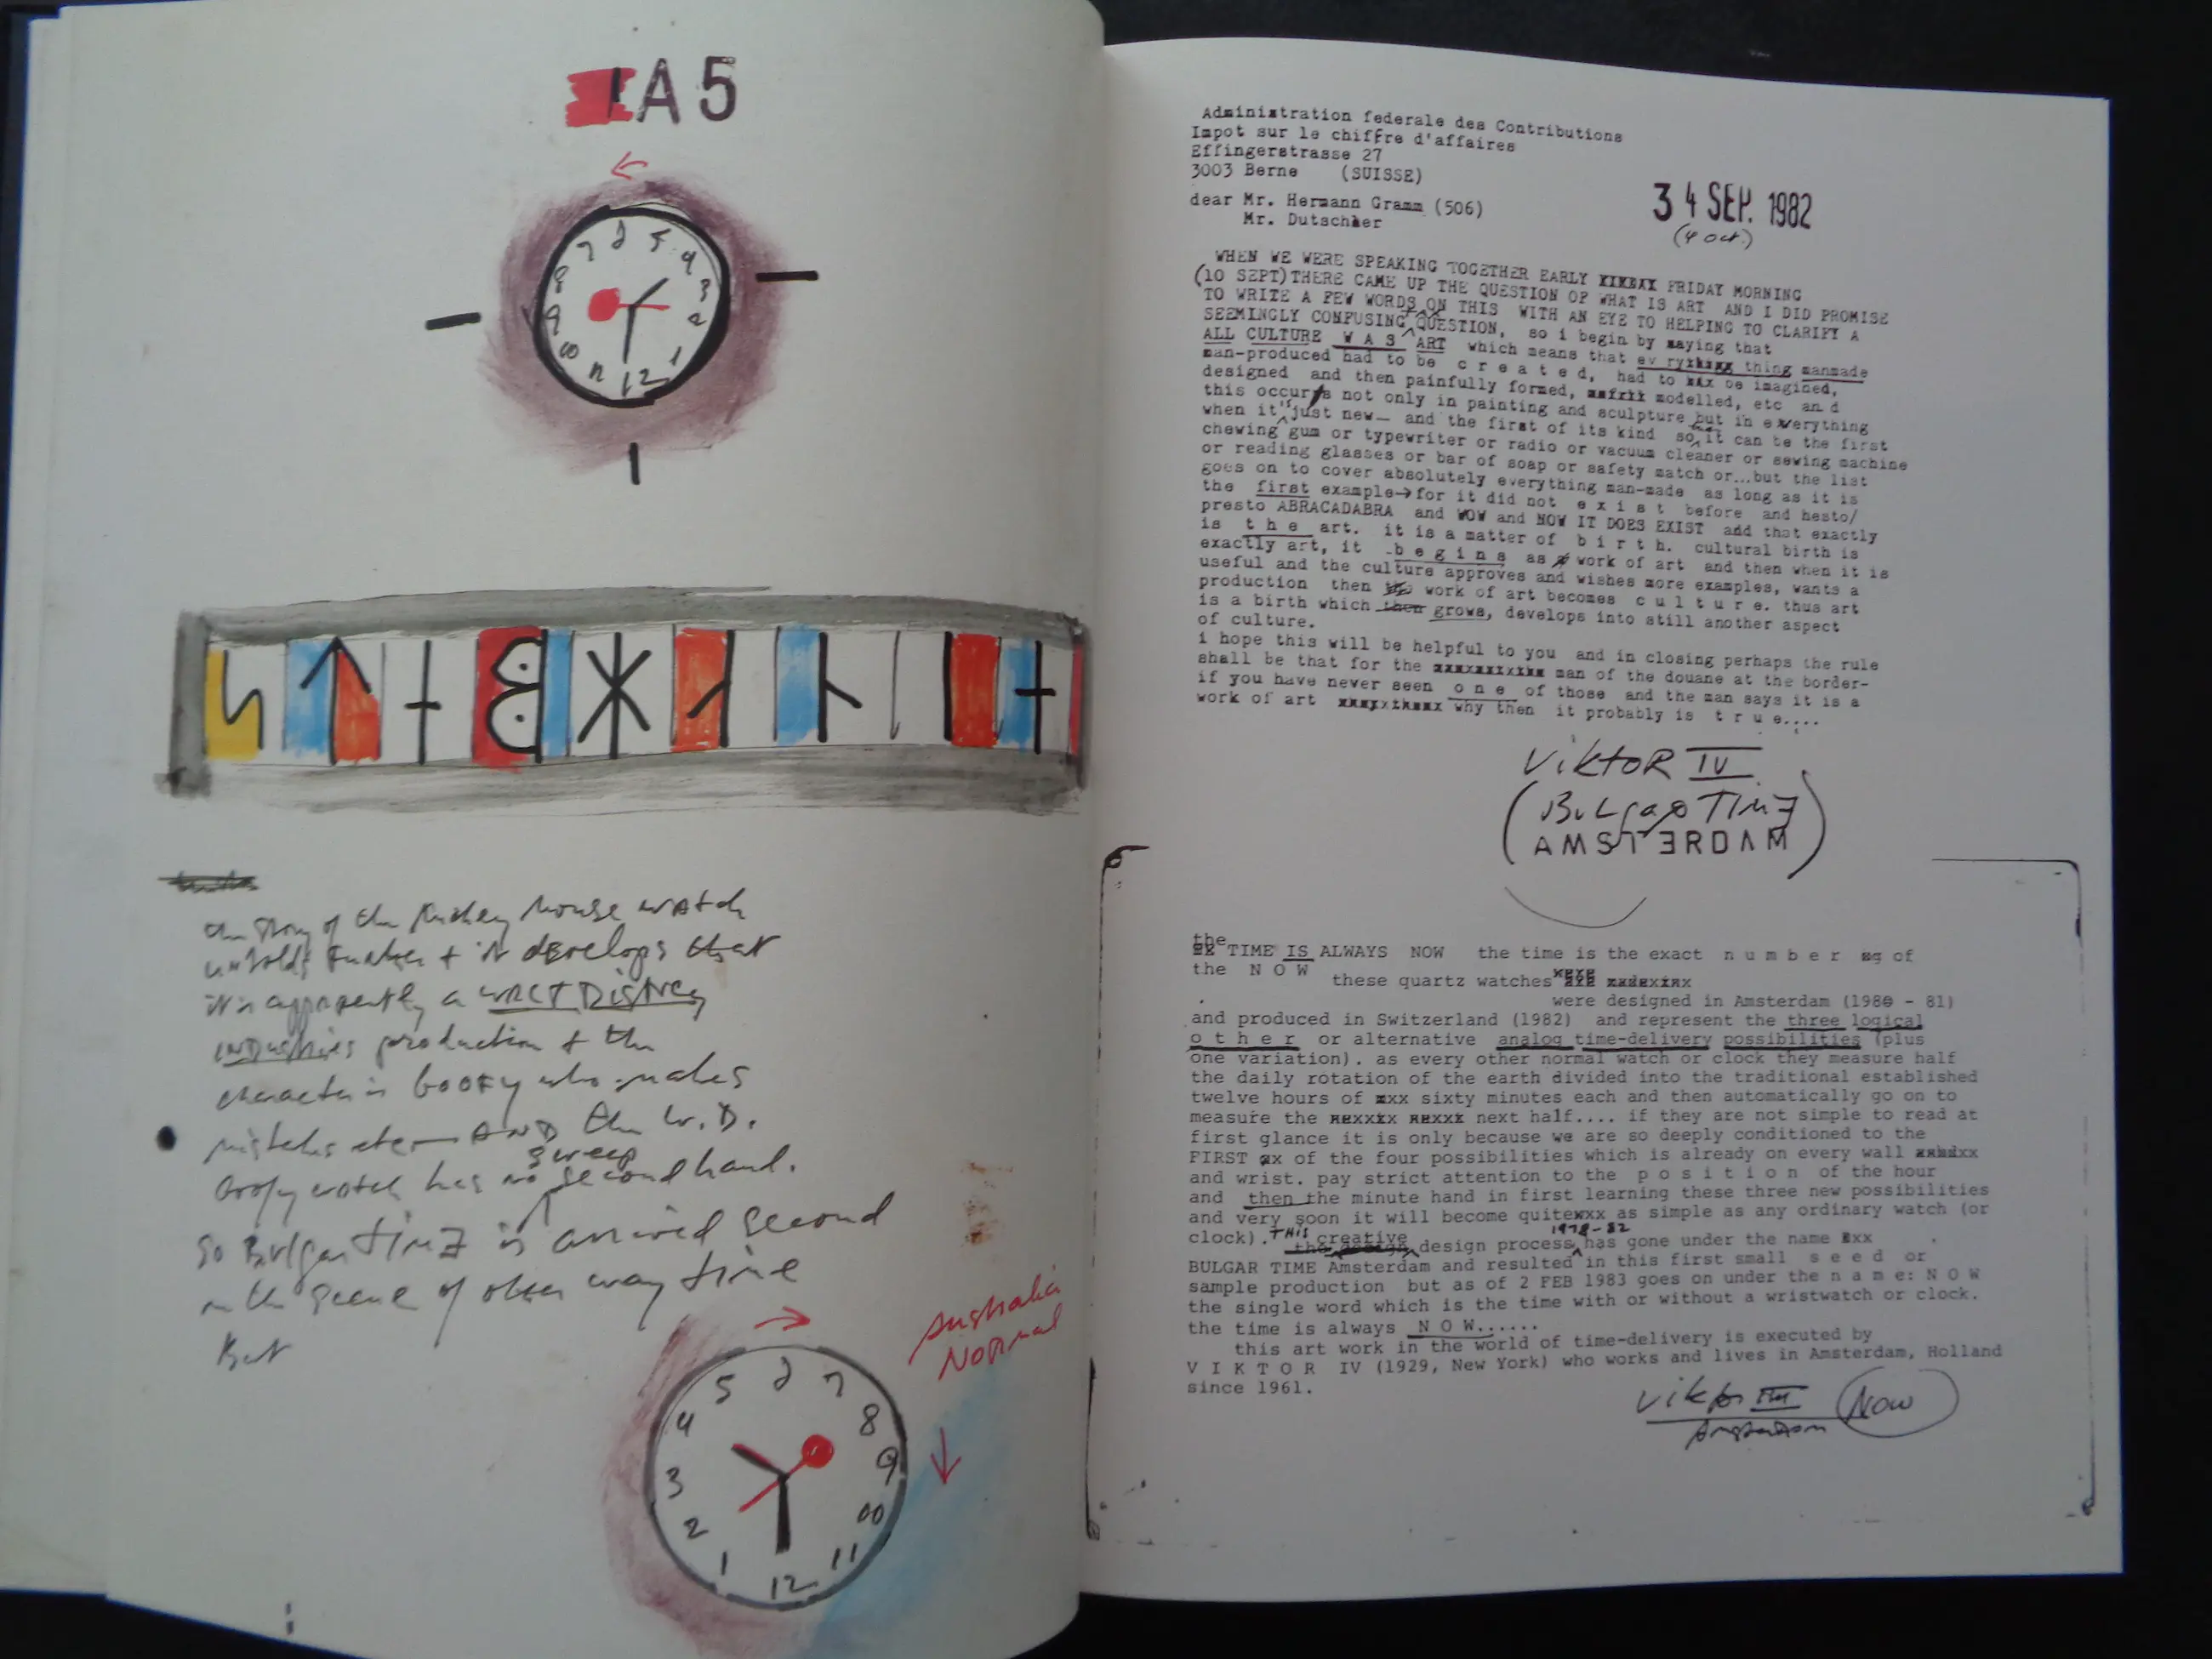 IA5
←
7 6 5
8 4
9 3
10 2
11 12 1
the story of the Mickey Mouse watch
unfolds further + it develops that
it is apparently a WALT DISNEY
INDUSTRIES production + the
character is GOOFY who makes
mistakes etc — AND the W.D.
sweep
Goofy watch has no second hand.
So BulgarTimE is arrived second
on the scene of other way time
But
→
Australia
Normal
5 6 7
4 8
3 9
2 10
1 12 11
Administration federale des Contributions
Impot sur le chiffre d'affaires
Effingerstrasse 27
3003 Berne (SUISSE)
34 SEP. 1982
(4 oct.)
dear Mr. Hermann Gramm (506)
Mr. Dutschler
WHEN WE WERE SPEAKING TOGETHER EARLY FRIDAY MORNING
(10 SEPT)THERE CAME UP THE QUESTION OF WHAT IS ART AND I DID PROMISE
TO WRITE A FEW WORDS ON THIS WITH AN EYE TO HELPING TO CLARIFY A
SEEMINGLY CONFUSING QUESTION, so i begin by saying that
ALL CULTURE W A S ART which means that ev ry thing manmade
man-produced had to be c r e a t e d, had to be imagined,
designed and then painfully formed, modelled, etc an d
this occurs not only in painting and sculpture but in everything
when it's just new— and the first of its kind so it can be the first
chewing gum or typewriter or radio or vacuum cleaner or sewing machine
or reading glasses or bar of soap or safety match or...but the list
goes on to cover absolutely everything man-made as long as it is
the first example→for it did not e x i s t before and hesto/
presto ABRACADABRA and WOW and NOW IT DOES EXIST and that exactly
is t h e art. it is a matter of b i r t h. cultural birth is
exactly art, it b e g i n s as a work of art and then when it is
useful and the culture approves and wishes more examples, wants a
production then work of art becomes c u l t u r e. thus art
is a birth which then grows, develops into still another aspect
of culture.
i hope this will be helpful to you and in closing perhaps the rule
shall be that for the man of the douane at the border-
if you have never seen o n e of those and the man says it is a
work of art why then it probably is t r u e....
VIKTOR IV
(BULgaR TIMƎ
AMSTƎRDAM)
the TIME IS ALWAYS NOW the time is the exact n u m b e r of
the N O W these quartz watches
were designed in Amsterdam (1980 - 81)
and produced in Switzerland (1982) and represent the three logical
o t h e r or alternative analog time-delivery possibilities (plus
one variation). as every other normal watch or clock they measure half
the daily rotation of the earth divided into the traditional established
twelve hours of sixty minutes each and then automatically go on to
measure the next half.... if they are not simple to read at
first glance it is only because we are so deeply conditioned to the
FIRST of the four possibilities which is already on every wall
and wrist. pay strict attention to the p o s i t i o n of the hour
and then the minute hand in first learning these three new possibilities
and very soon it will become quite as simple as any ordinary watch (or
clock). THIS creative design process 1978-82 has gone under the name
BULGAR TIME Amsterdam and resulted in this first small s e e d or
sample production but as of 2 FEB 1983 goes on under the n a m e: N O W
the single word which is the time with or without a wristwatch or clock.
the time is always N O W......
this art work in the world of time-delivery is executed by
V I K T O R IV (1929, New York) who works and lives in Amsterdam, Holland
since 1961.
Viktor IV Now
Amsterdam